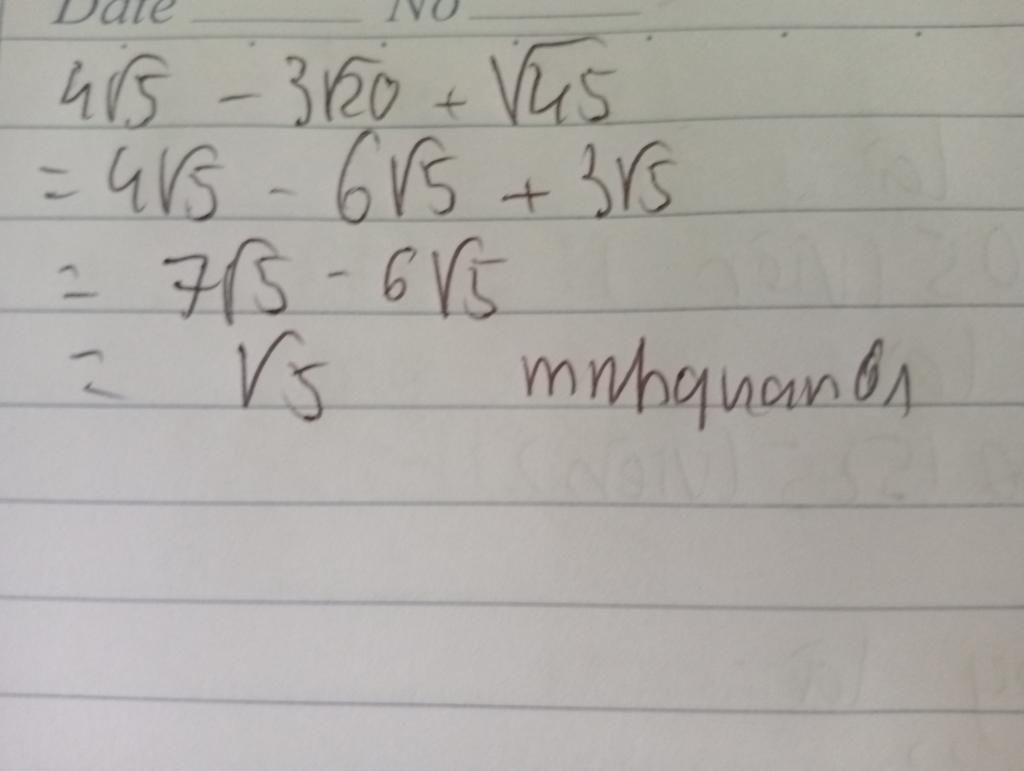 Date No
4√5 - 3√20 + √45
= 4√5 - 6√5 + 3√5
= 7√5 - 6√5
= √5 mnhquan01